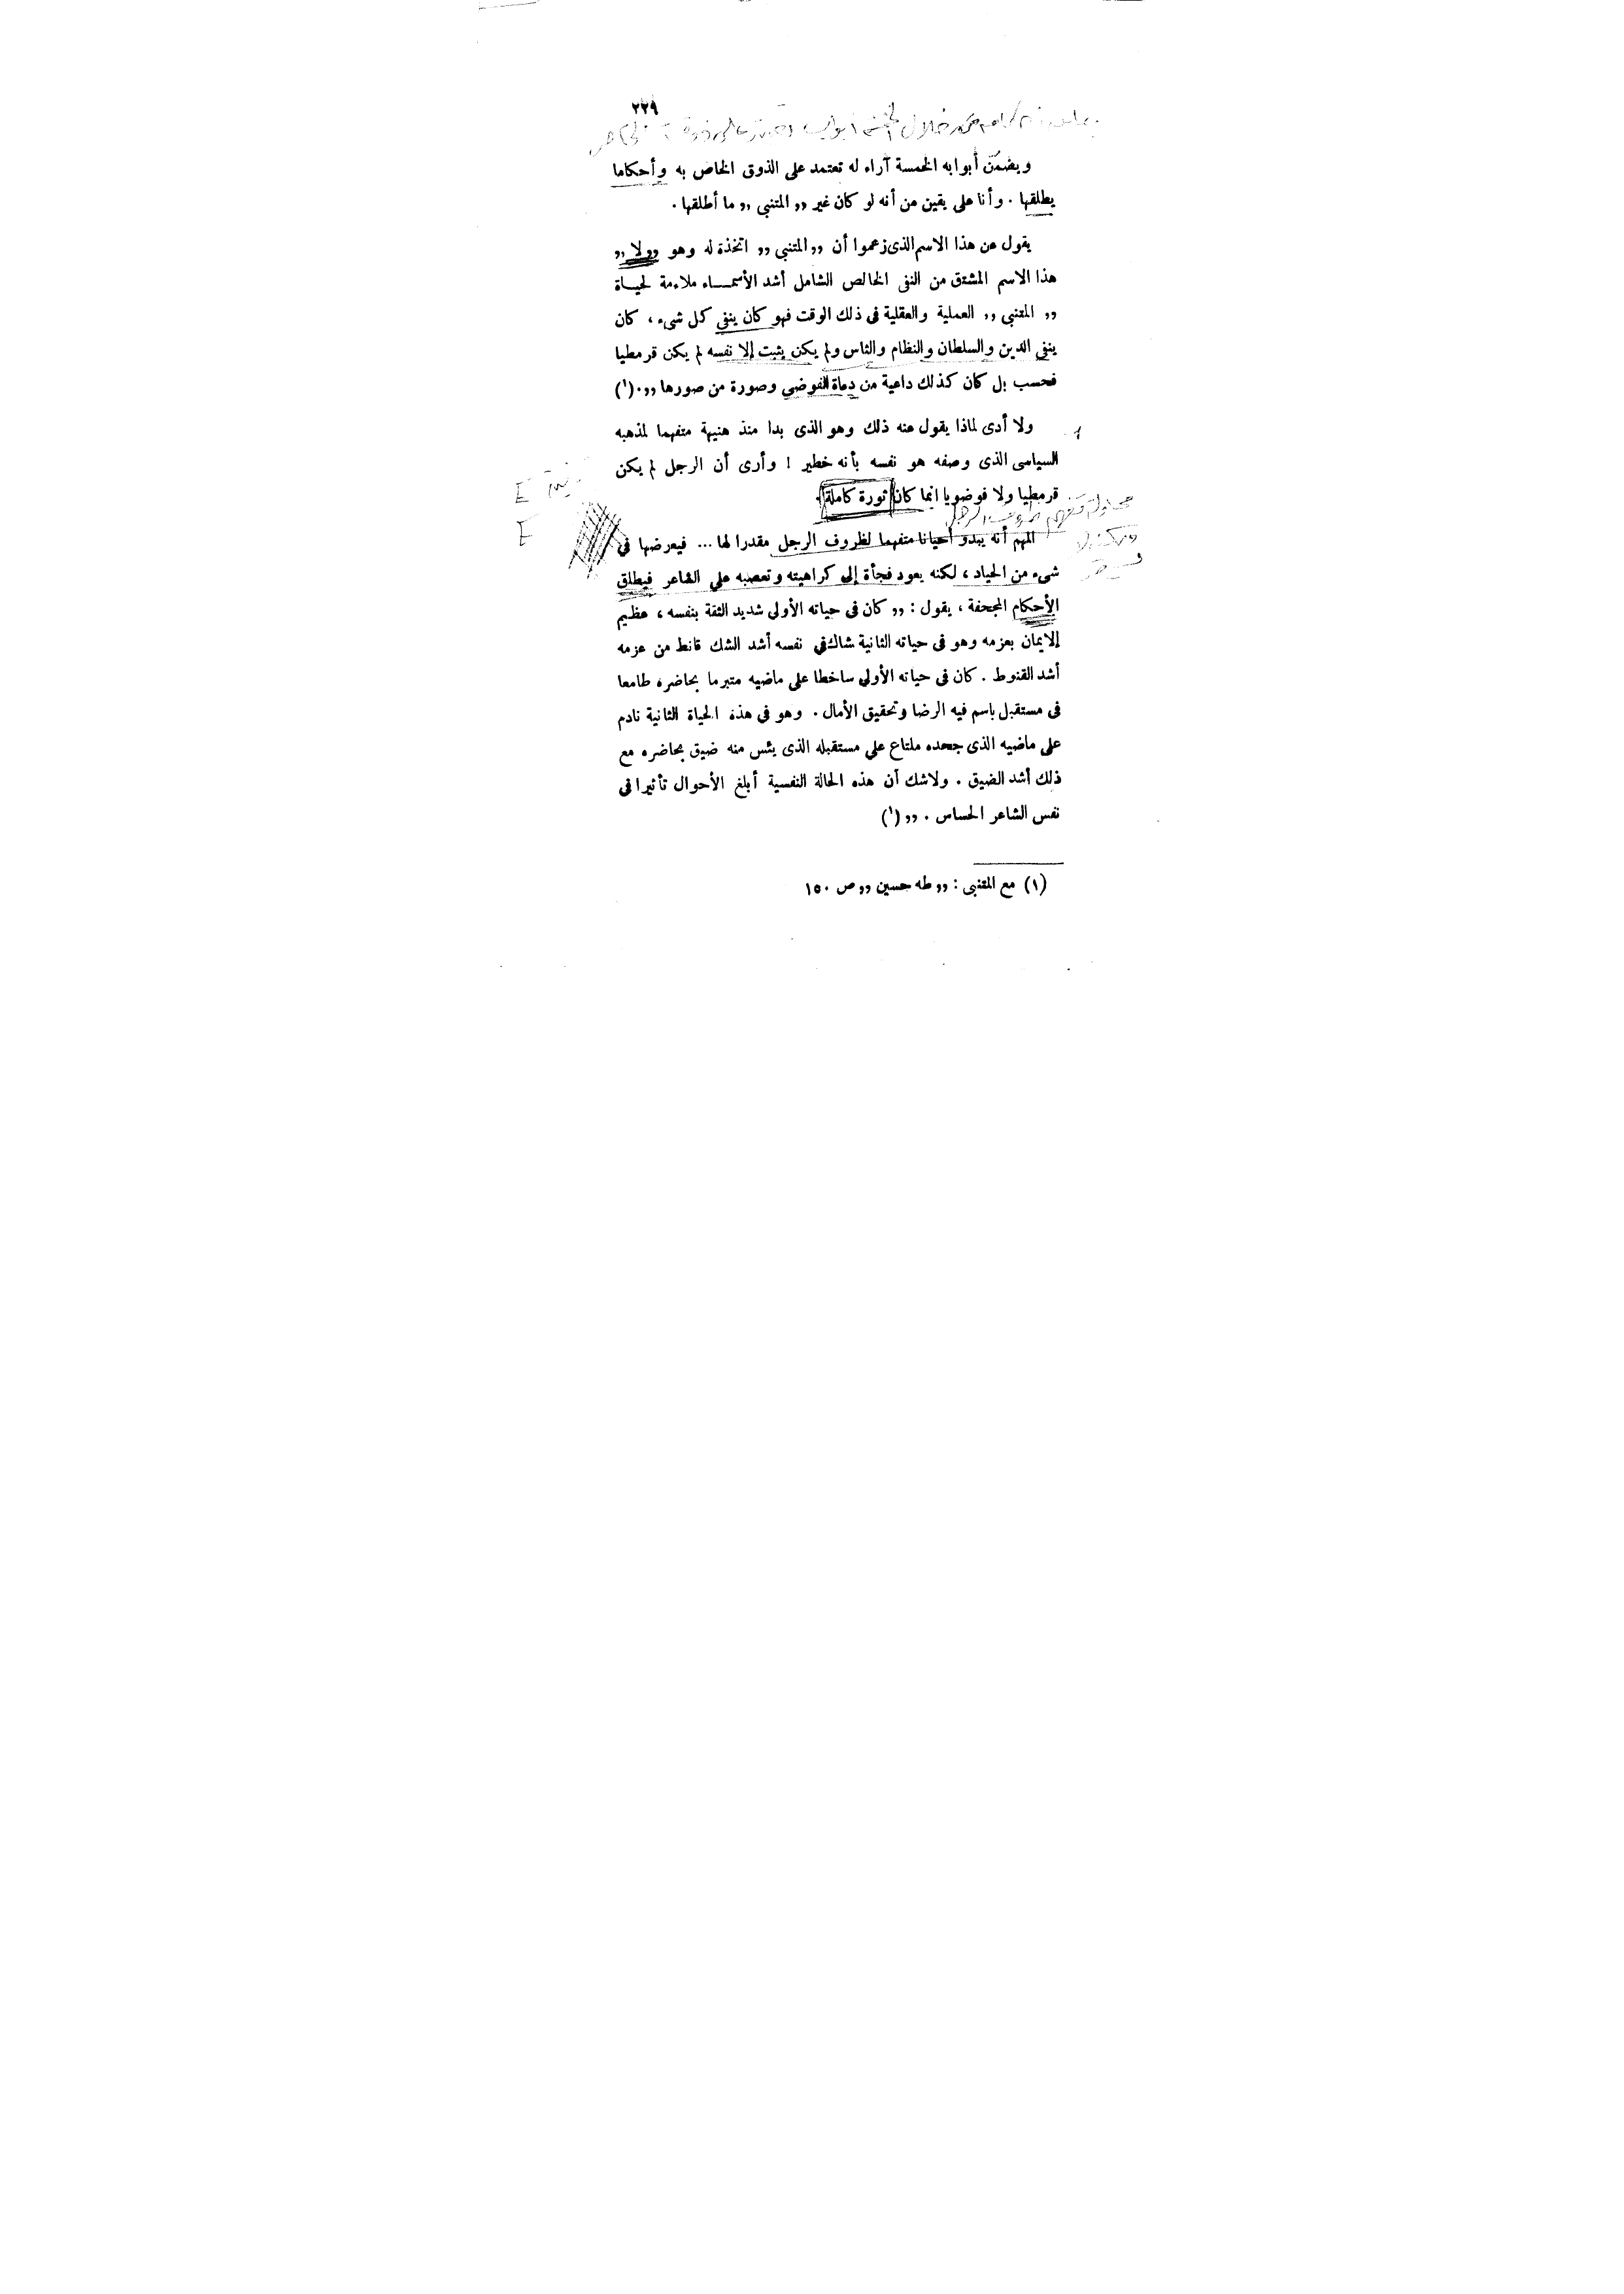 ٢٢٩
ويضمّن أبوابه الخمسة آراء له تعتمد على الذوق الخاص به وأحكاما
يطلقها . وأنا على يقين من أنه لو كان غير ,, المتنبى ,, ما أطلقها .
يقول عن هذا الاسم الذى زعموا أن ,, المتنبى ,, اتخذة له وهو ,, لا ,,
هذا الاسم المشتق من النفى الخالص الشامل أشد الأسمـــاء ملاءمة لحيـــاة
,, المتنبى ,, العملية والعقلية فى ذلك الوقت فهو كان ينفى كل شىء ، كان
ينفى الدين والسلطان والنظام والناس ولم يكن يثبت إلا نفسه لم يكن قرمطيا
فحسب بل كان كذلك داعية من دعاة الفوضى وصورة من صورها ,, . (١)
ولا أدى لماذا يقول عنه ذلك وهو الذى بدا منذ هنيهة متفهما لمذهبه
السياسى الذى وصفه هو نفسه بأنه خطير ! وأرى أن الرجل لم يكن
قرمطيا ولا فوضويا انما كان ثورة كاملة .
محاولة تفهم ظروف الرجل
المهم أنه يبدو أحيانا متفهما لظروف الرجل مقدرا لها ... فيعرضها فى
شىء من الحياد ، لكنه يعود فجأة إلى كراهيته وتعصبه على الشاعر فيطلق
الأحكام المجحفة ، يقول : ,, كان فى حياته الأولى شديد الثقة بنفسه ، عظيم
الايمان بعزمه وهو فى حياته الثانية شاك فى نفسه أشد الشك قانط من عزمه
أشد القنوط . كان فى حياته الأولى ساخطا على ماضيه متبرما بحاضره طامعا
فى مستقبل باسم فيه الرضا وتحقيق الأمال . وهو فى هذه الحياة الثانية نادم
على ماضيه الذى جحده ملتاع على مستقبله الذى يئس منه ضيق بحاضره مع
ذلك أشد الضيق . ولاشك أن هذه الحالة النفسية أبلغ الأحوال تأثيرا فى
نفس الشاعر الحساس . ,, (١)
(١) مع المتنبى : ,, طه حسين ,, ص ١٥٠